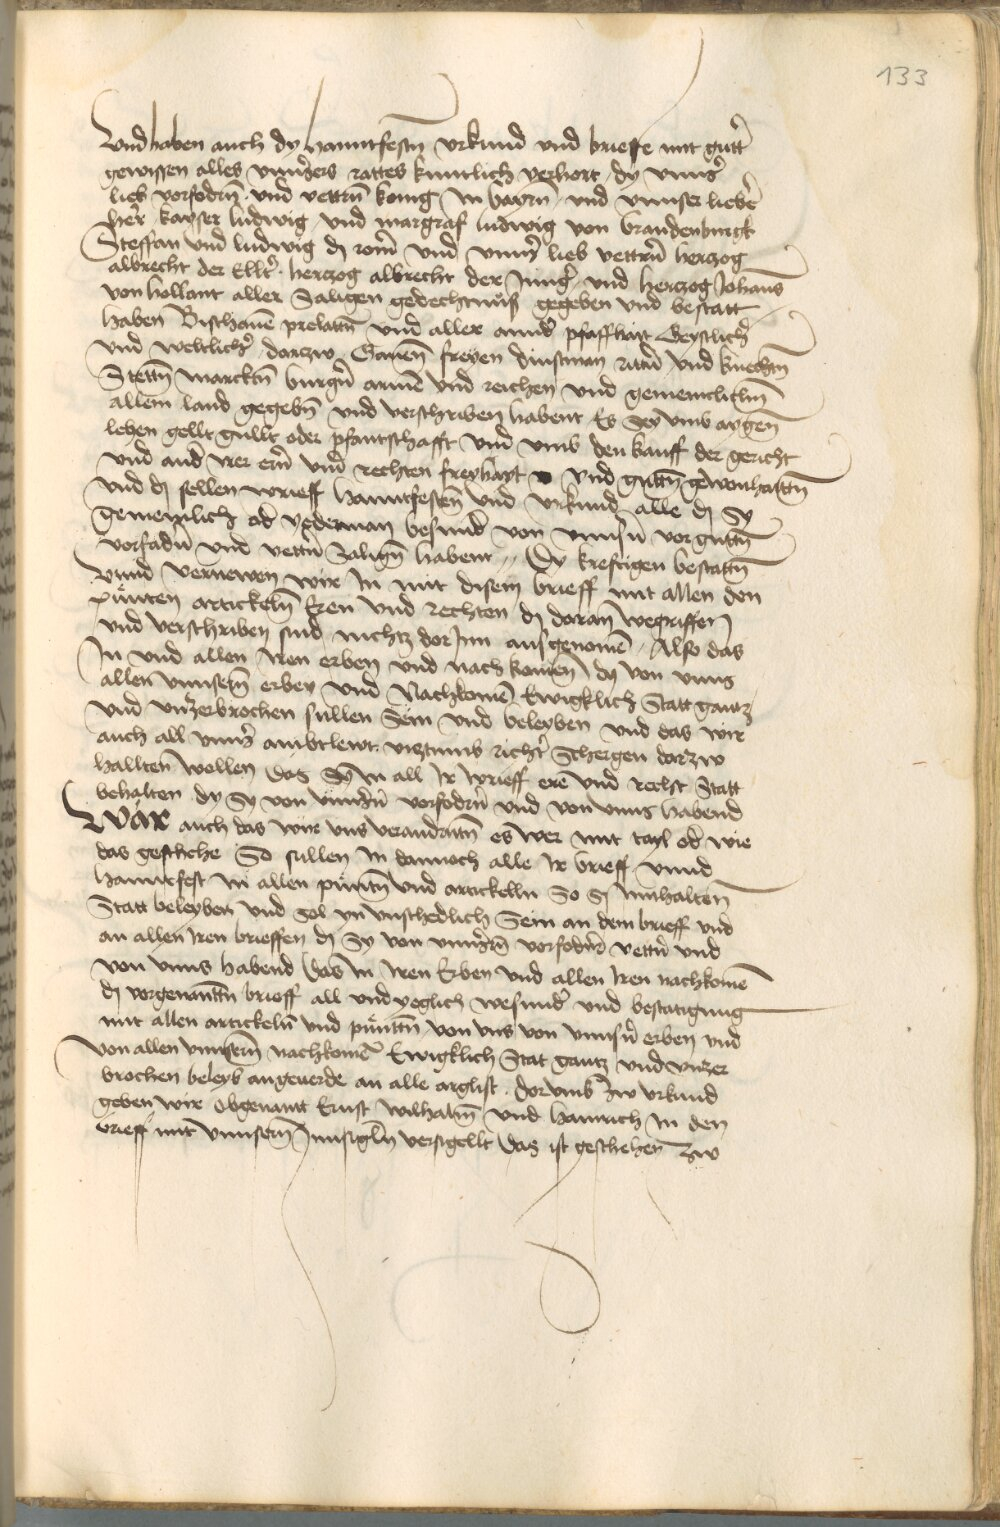 133
Und haben auch dy hanntfestn̄ vrkund vnd brieffe mit gutt̄
gewissen alles vnnsers rattes kuntlich verhort dy vnns̄
lieb vorfodrn̄ vnd vettrn̄ konig in bayrn̄ vnd vnnser lieb̄
her kayser ludwig vnd margraf ludwig von brandenburgk
Steffan vnd ludwig dy rom̄ vnd vnns̄ lieb vettrn̄ hertzog
albrecht der Ellt̄ hertzog albrecht der Junḡ vnd hertzog Johans
von hollant aller Saligen gedechtnuß gegeben vnd bestatt
haben Bischauen prelattn̄ vnd aller annd̄ pfaffhait Geystlich̄
vnd weltlich̄ darzw Gauen̄ freyen dinstman rittn̄ vnd knechtn̄
Stettn̄ marcktn̄ burgn̄ armen vnd reichen vnd gemeincklichn̄
allem land gegebn̄ vnd verschriben habent Es sey vmb aygen
lehen gellt gullt oder pfantschafft vnd vmb den kauff der gericht
vnd and̄ irer ern̄ vnd rechten freyhayt vnd guttn̄ gewonhaittn̄
vnd dy sellen brieff hanntfesten̄ vnd vrkund alle dy Sy
gemeinlich od̄ yederman besund̄ von vnnsn̄ vorguttn̄
vorfadn̄ vnd vettn̄ Salign̄ habent Dy kreftigen bestattn̄
vnnd vernewen wir in mit disem brieff mit allen den
pünten artickeln̄ Eren vnd rechten dy daran begriffen
vnd verschriben sind nichtz dor Inn ausgenomen Also das
In vnd allen Iren erben vnd nachkomen dy von vnns
allen vnnsern̄ erben vnd Nachkomen Ewigklich Statt gantz
vnd vnzerbrochen sullen Sein vnd beleyben vnd das wir
auch all vnns̄ ambtlewt vitztumb richt̄ Schergen darzw
hallten wellen das Sy in all Ir brieff ere vnd recht Statt
behalten dy Sy von vnnsn̄ vorfodrn̄ vnd von vnns habend
Wär auch das wir vns verandrttn̄ es wer mit tayl od̄ wie
das geschehe So sullen in dannoch alle Ir brieff vnnd
hanntfest in allen püntn̄ vnd artickelln So sy innhalten
Statt beleyben vnd sol yn vnschedlich Sein an dem brieff vnd
an allen Iren brieffen dy Sy von vnnsrn̄ vorfodrn̄ vettn̄ vnd
von vnns habend Das in Iren Erben vnd allen Iren nachkomen
dy vorgenanttn̄ brieff all vnd yeglich besund̄ vnd bestatigung
mit allen artickeln̄ vnd pünttn̄ von vns von vnnsn̄ erben vnd
von allen vnnsern̄ nachkomen Ewigklich Stat gantz vnd vnzer
brochen beleyb angeuerde an alle arglist Dorvmb zw vrkund
geben wir obgenantt Ernst wilhalm̄ vnd hainrich in den
brieff mit vnnsern̄ Innsigln̄ versigellt Das ist geschehen zw